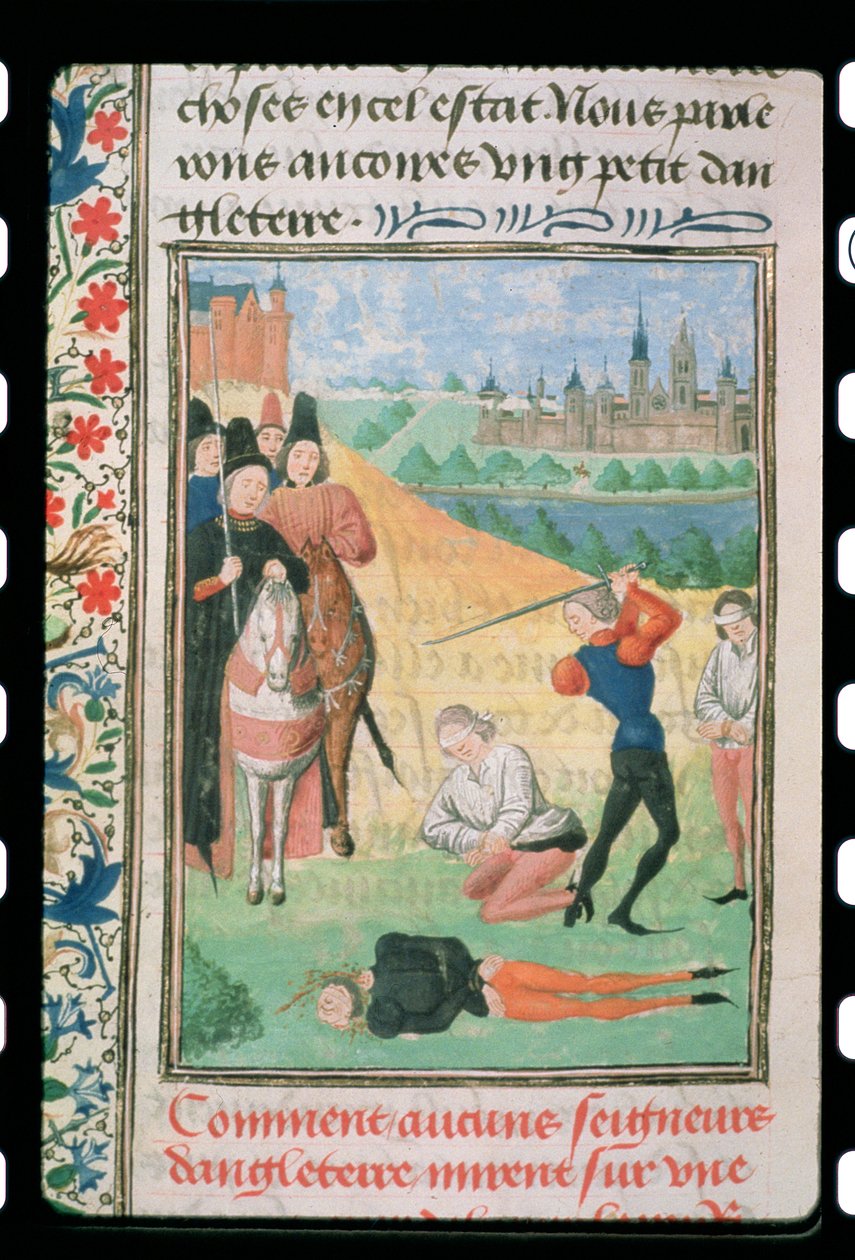 choses en cel estat. Nous parle
rons ancores ung petit dan
gleterre.
Comment aucuns seigneurs
dangleterre mirent sur une